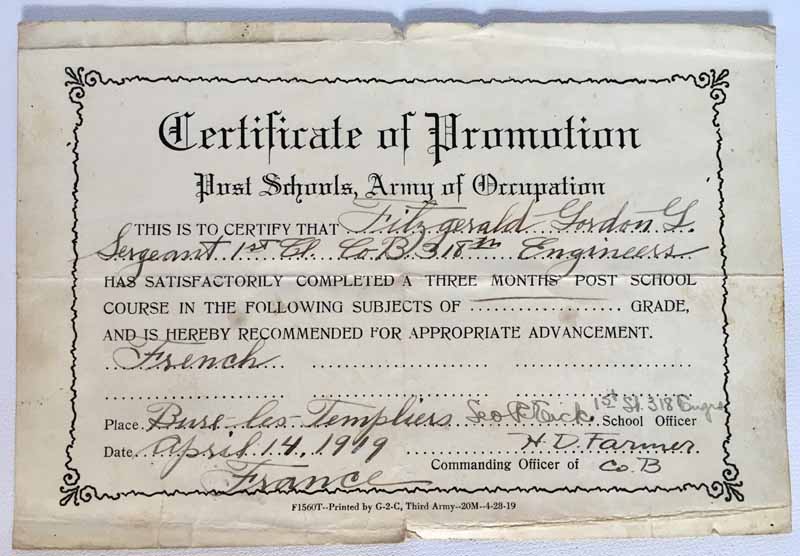 Certificate of Promotion
Post Schools, Army of Occupation
THIS IS TO CERTIFY THAT Fitzgerald Gordon G.
Sergeant 1st Cl. Co B. 318th Engineers
HAS SATISFACTORILY COMPLETED A THREE MONTHS' POST SCHOOL
COURSE IN THE FOLLOWING SUBJECTS OF .................... GRADE,
AND IS HEREBY RECOMMENDED FOR APPROPRIATE ADVANCEMENT.
French
Place Bure-les-Templiers Geo 1st Lt. 318 Engrs School Officer
Date April 14, 1919 H D. Farmer
France Commanding Officer of Co. B
F1560T--Printed by G-2-C, Third Army--20M--4-28-19